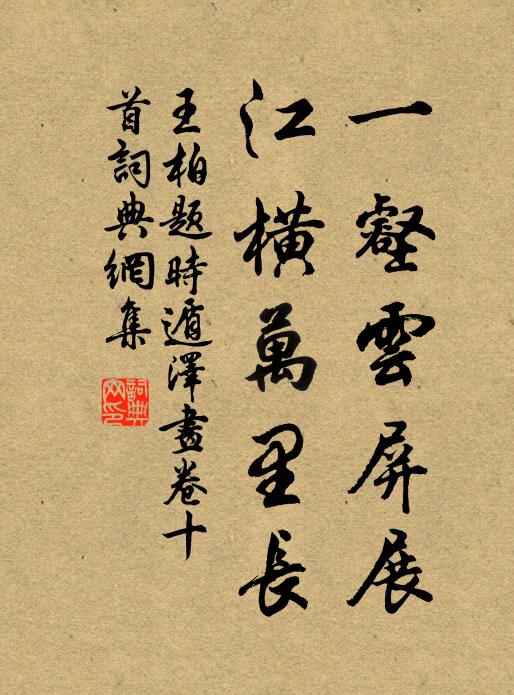 一壑雲屏展
江橫萬里長
王柏題時遁澤畫卷十
首詞典網集
詞典網印